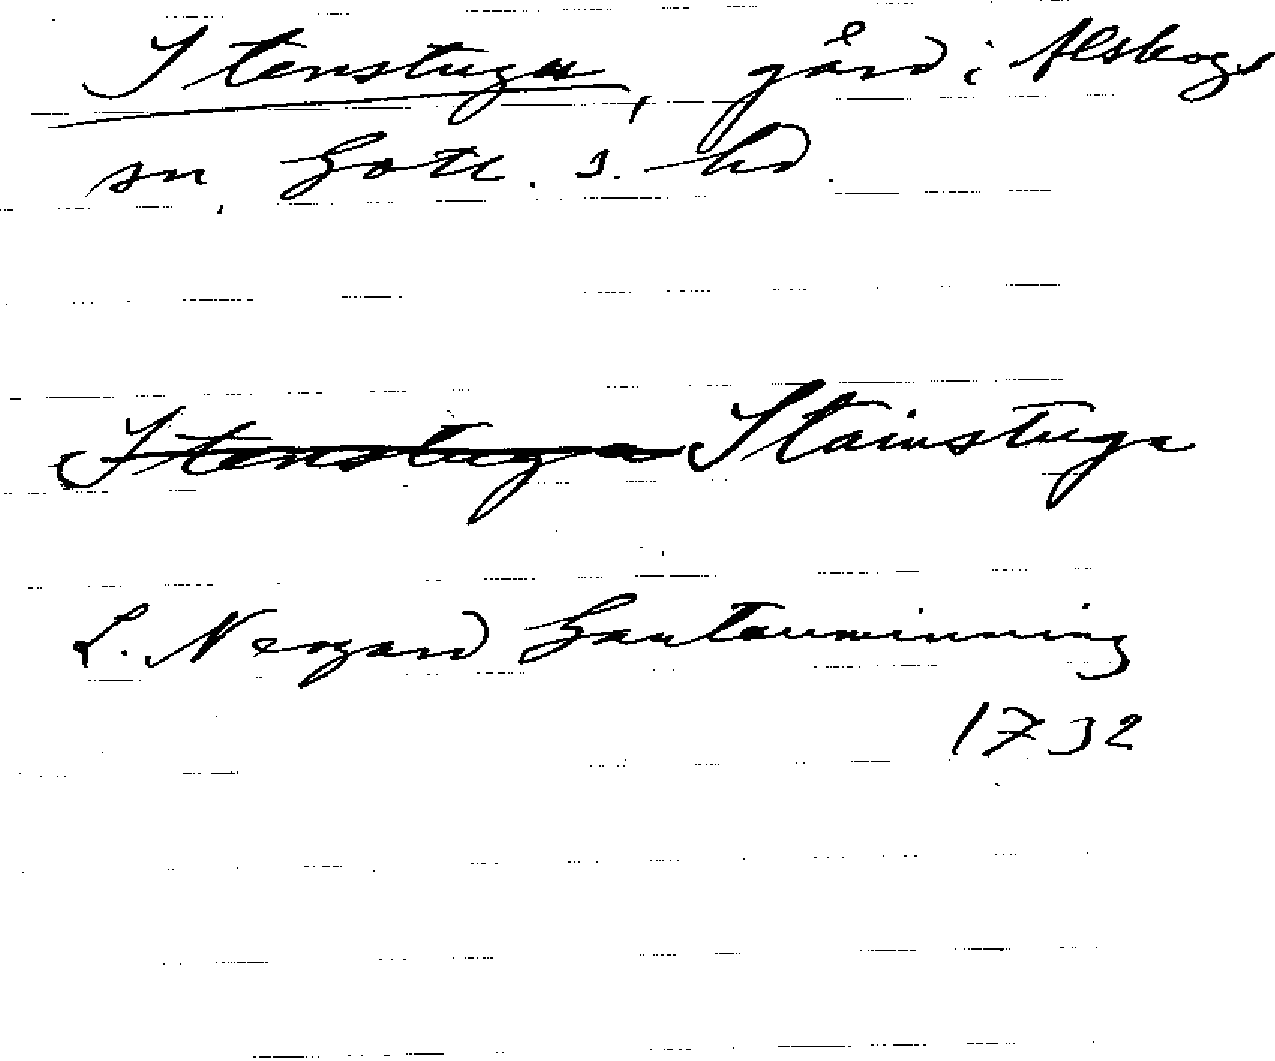 Stenstugu, gård i Alskogs
sn, Gotl. s. hd.
Stenstuga Stainstuga
L. Neogard Gautauminning
1732